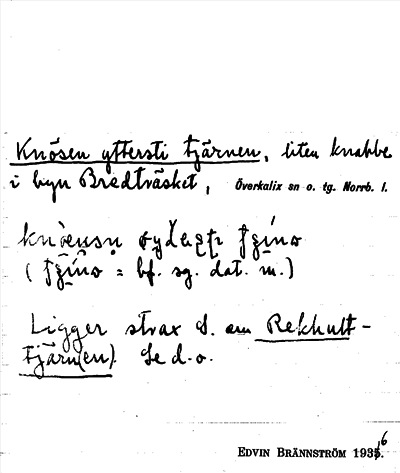 Knösen yttersti tjärnen, liten knabbe
i byn Bredträsket, Överkalix sn o. tg. Norrb. l.
( = bf. sg. dat. m.)
Ligger strax S. om Rekhult-
tjärn(en). Se d. o.
EDVIN BRÄNNSTRÖM 1936.